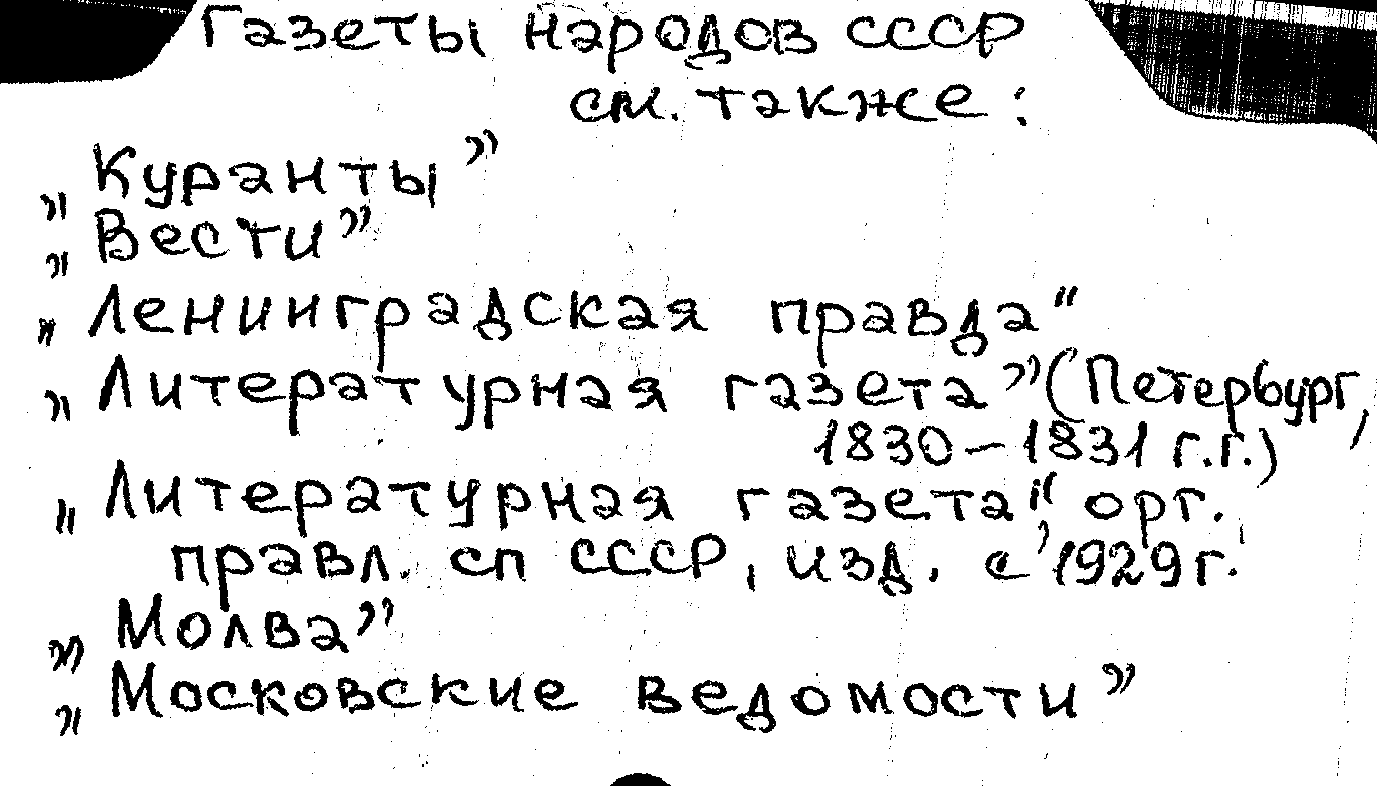 Газеты народов СССР
см. также:
„Куранты”
„Вести”
„Ленинградская правда“
„Литературная газета” (Петербург,
1830–1831 г.г.)
„Литературная газета“ орг.
правл. сп СССР, изд. с 1929 г.
„Молва”
„Московские ведомости”